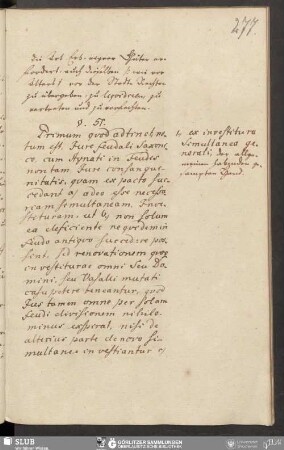 277.
fordert, auch dieselben
vor der Stadt
zu übergeben, zu
vertreten und zu verrichten.
§. 51.
Primum quod adtinet notum
est. Jure feudali Saxonico,
cum Agnati in Feudis
non tam Jure consanguinitatis,
quam ex pacto succedant
a) adeo esse necessariam
simultaneam Investituram,
ut b) non solum
ea deficiente nequidem in
Feudo antiquo succedere possent,
sed renovationem quoque
investiturae omni seu Domini,
seu Vasalli mutati
casu petere teneantur, quod
Jus tamen omne per solam
feudi divisionem nihilominus
exspirat, nisi de
alterius parte de novo simultanee
investiantur c)
1, ex investitura
simultanea generali,
der allgemeinen habenden gesampten
Hand.
SLUB
Wir führen Wissen.
GÖRLITZER SAMMLUNGEN
OBERLAUSITZISCHE BIBLIOTHEK